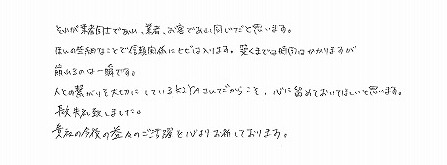 それが業者同士であれ、業者、お客であれ同じだと思います。
ほんの些細なことで信頼関係にヒビは入ります。築くまでは時間はかかりますが
崩れるのは一瞬です。
人との繋がりを大切にしているからこそ、心に留めておいてほしいと思います。
長文失礼致しました。
貴社の今後の益々のご活躍を心よりお祈しております。